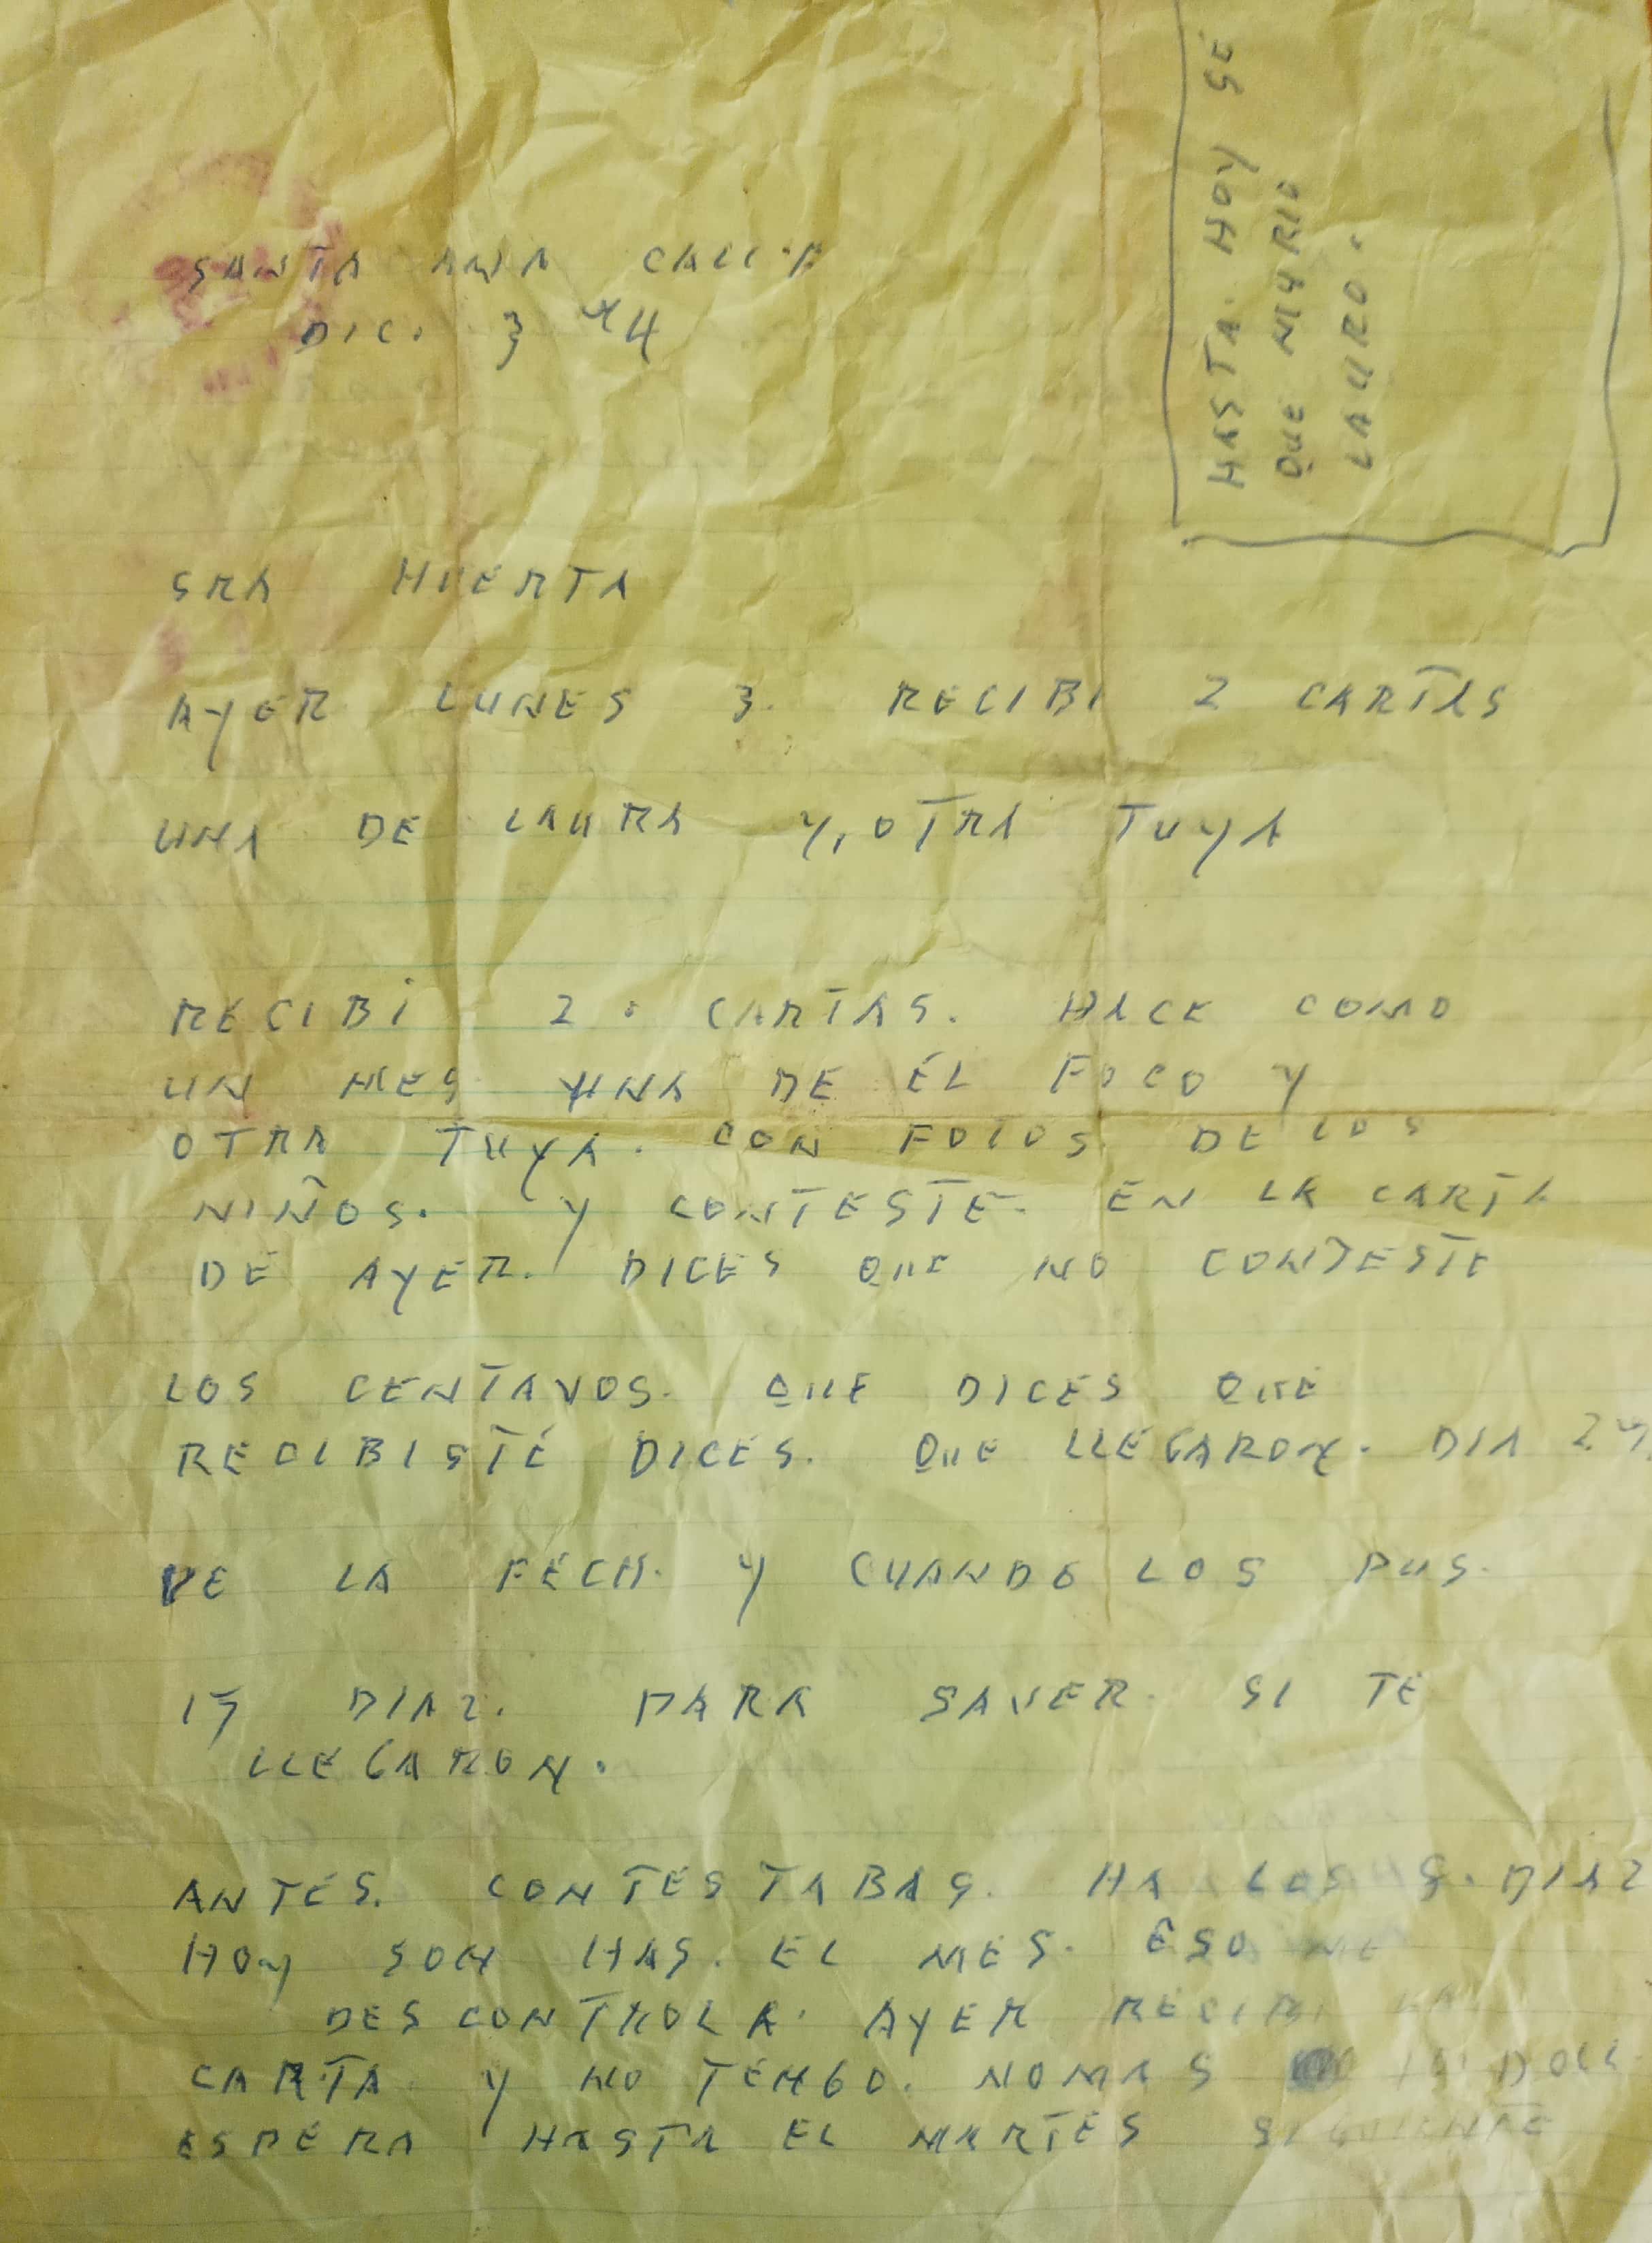 SANTA ANA CALIF
DIC. 3
HASTA. HOY SÉ
QUE MURIO
LAURO.
SRA HUERTA
AYER LUNES 3. RECIBI 2 CARTAS
UNA DE LAURA Y, OTRA TUYA
RECIBI 2. CARTAS. HACE COMO
UN MES UNA DE ÉL FOCO Y
OTRA TUYA. CON FOTOS DE LOS
NIÑOS. Y CONTESTE. EN LA CARTA
DE AYER. DICES QUE NO CONTESTE
LOS CENTAVOS. QUE DICES QUE
RECIBISTÉ DICES. QUE LLEGARON. DIA
DE LA FECH. Y CUANDO LOS PUS.
15 DIAZ. PARA SAVER. SI TE
LLEGARON.
ANTES. CONTESTABAS. HA LOS DIAZ
HOY SON HAS. EL MES. ESO ME
DESCONTROLA. AYER RECIBI
CARTA Y NO TENGO. NOMAS DOLL
ESPERA HASTA EL MARTES SIGUIENTE